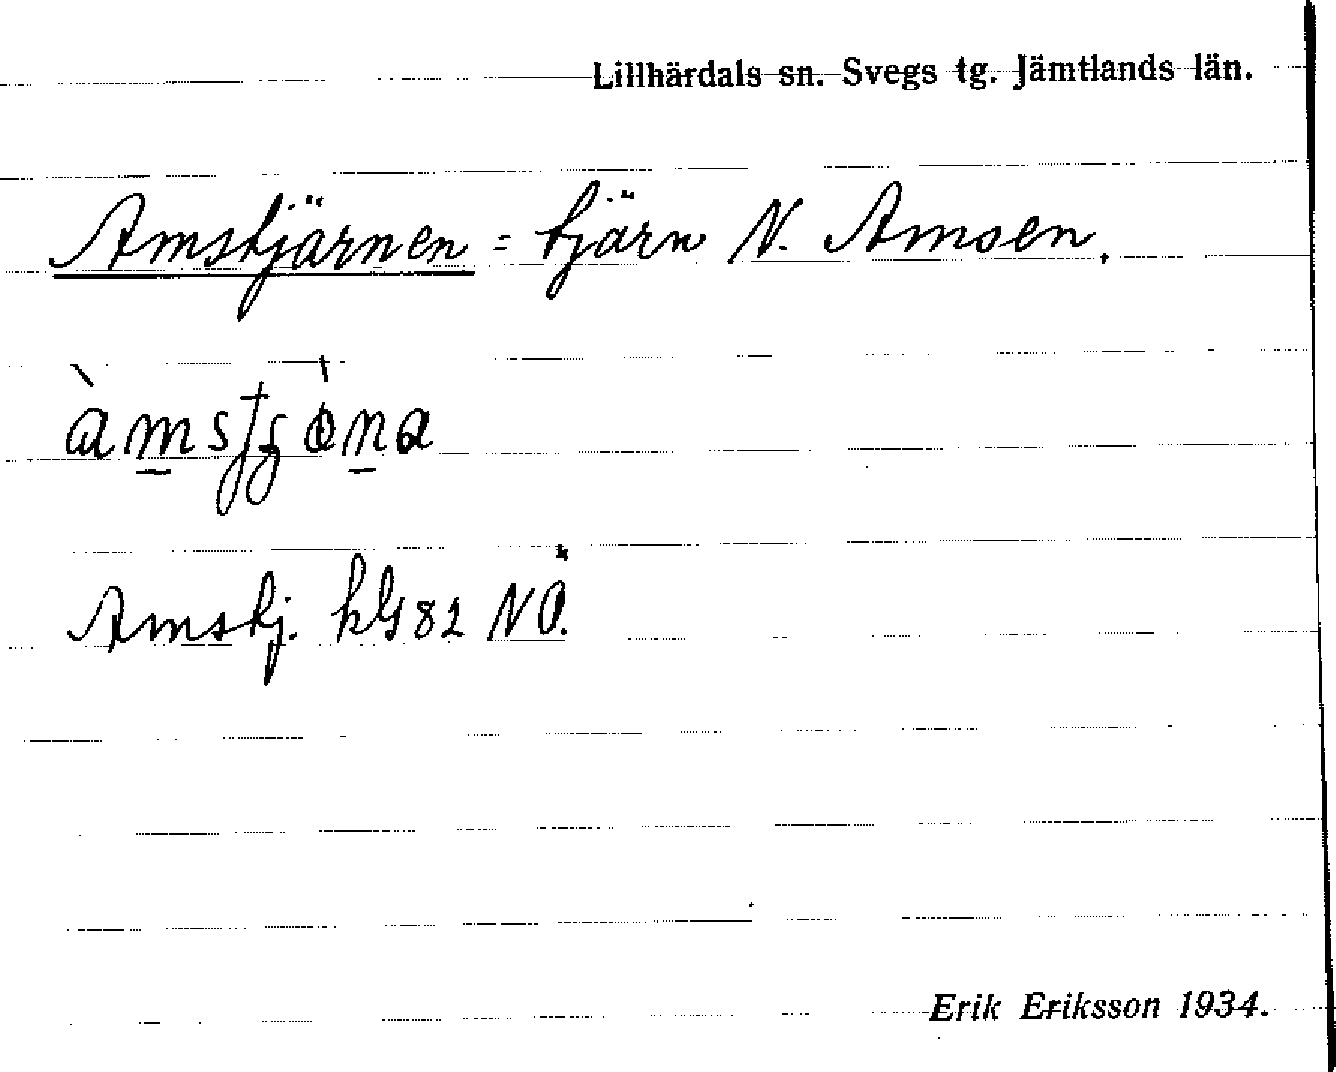 Lillhärdals sn. Svegs tg. Jämtlands län.
Amstjärnen = tjärn N. Amsen.
Amstj. kbl 82 NÖ.
Erik Eriksson 1934.